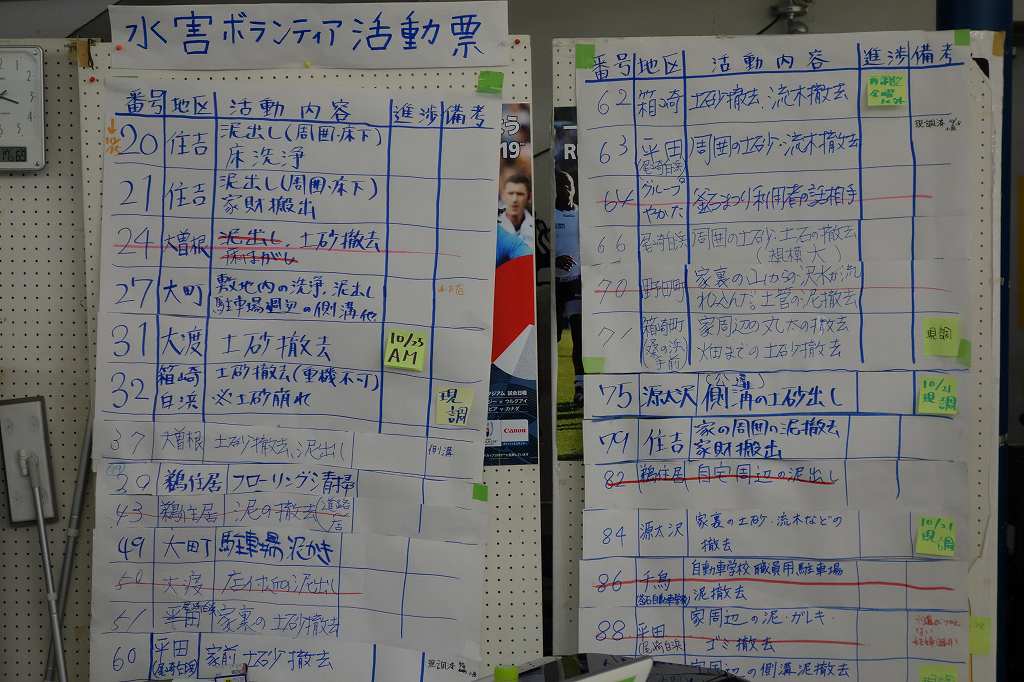 水害ボランティア活動票
番号 地区 活動内容 進捗 備考
20 住吉 泥出し(周囲・床下)
床洗浄
21 住吉 泥出し(周囲・床下)
家財搬出
24 大曽根 泥出し、土砂撤去
床はがし
27 大町 敷地内の洗浄、泥出し
駐車場周辺の側溝他
31 大渡 土砂撤去 10/25
AM
32 箱崎
白浜 土砂撤去(重機不可)
※土砂崩れ 現
調
37 大曽根 土砂撤去、泥出し 側溝
39 鵜住居 フローリング清掃
43 鵜住居 泥の撤去
49 大町 駐車場泥かき
50 大渡 店付近の泥出し
51 平田 家裏の土砂撤去
60 平田
(尾崎白浜) 家前土砂撤去 現調済
番号 地区 活動内容 進捗 備考
62 箱崎 土砂撤去、流木撤去
63 平田
(尾崎白浜) 周囲の土砂・流木撤去 現調済
64 グループ
やかた 釜石まつり利用者の話相手
66 尾崎白浜 周囲の土砂・土石の撤去
(規模大)
70 野田町 家裏の山からの沢水が流
れ込んだ。土管の泥撤去
71 箱崎町
(桑の浜)
手前 家周辺の丸太の撤去
畑までの土砂撤去 現調
75 源太沢 側溝の土砂出し 10/21
現調
79 住吉 家の周囲の泥撤去
家財搬出
82 鵜住居 自宅周辺の泥出し
84 源太沢 家裏の土砂・流木などの
撤去 10/21
現調
86 千鳥
(釜石自動車学校) 自動車学校職員用駐車場
泥撤去
88 平田
(尾崎白浜) 家周辺の泥・ガレキ・
ゴミ撤去
家周辺の側溝泥撤去
19
Canon